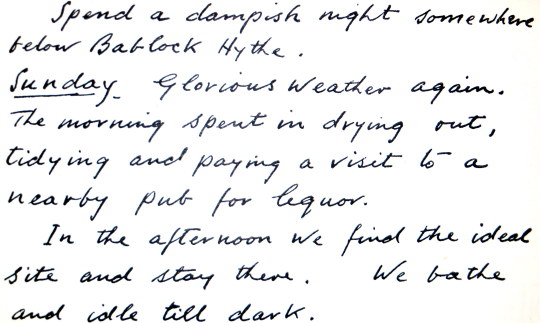 Spend a dampish night somewhere
below Bablock Hythe.
Sunday. Glorious weather again.
The morning spent in drying out,
tidying and paying a visit to a
nearby pub for lequor.
In the afternoon we find the ideal
site and stay there. We bathe
and idle till dark.